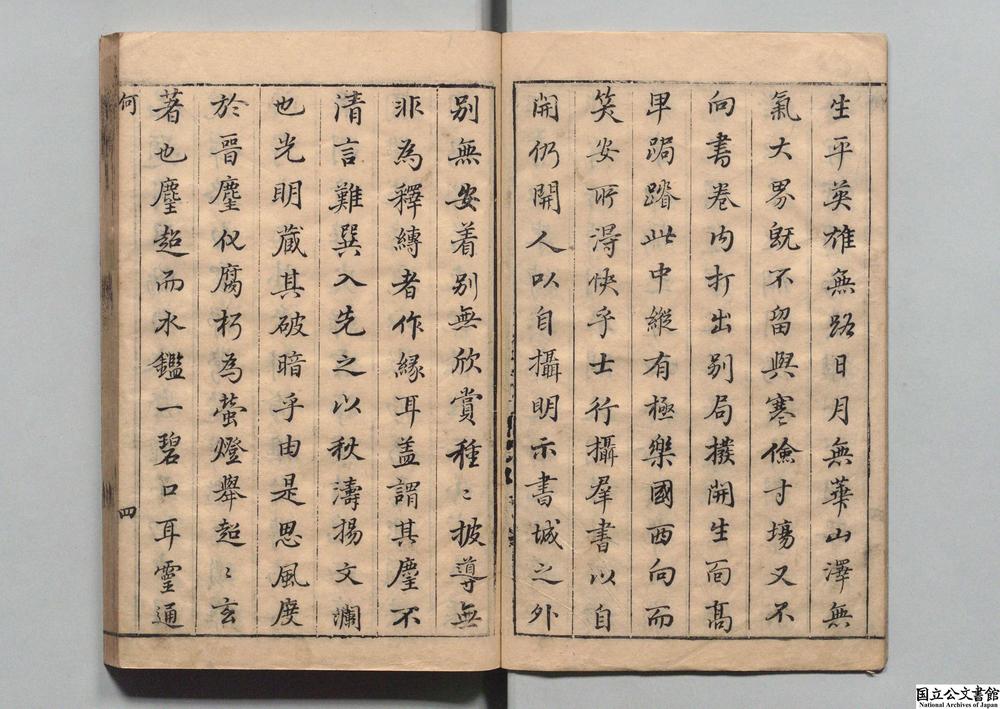 生平英雄無路日月無華山澤無
氣大界旣不留與寒儉寸塲又不
向書卷内打出别局撥開生面髙
卑跼蹐此中縱有極樂國西向而
笑安所得快乎士行攝羣書以自
開仍開人以自攝明示書城之外
别無安着别無欣賞種〻披導無
非為釋縛者作緣耳盖謂其麈不
清言難巽入先之以秋濤揚文瀾
也光明蔵其破暗乎由是思風度
於晉麈似腐朽為螢燈舉超〻玄
著也麈超而氷鑑一碧口耳靈通
何
四
国立公文書館
National Archives of Japan